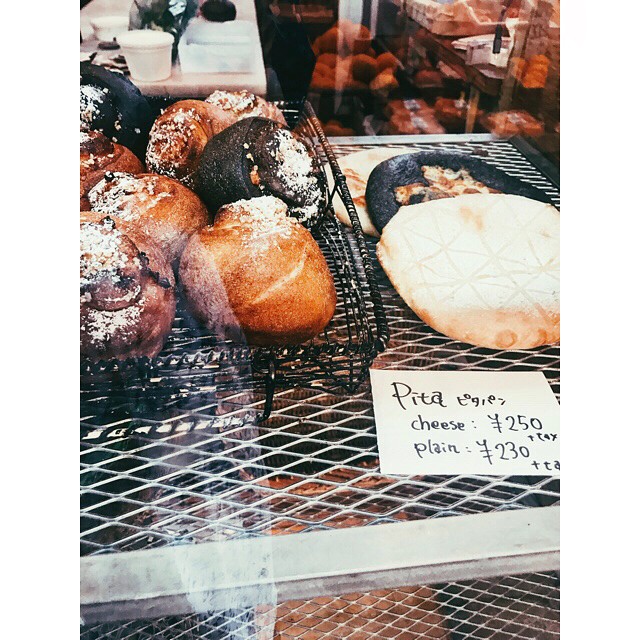 Pita ピタパン
cheese: ¥250
+tax
plain: ¥230
+ta